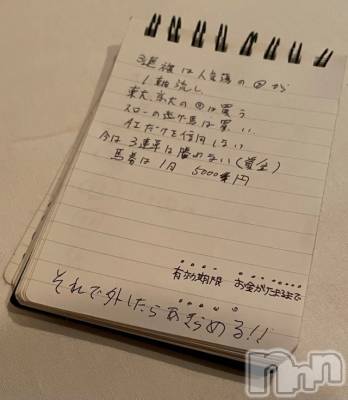 3連複は人気薄の②から
1軸流し
東大、京大の◎は買う
スローの逃げ馬は買い
仕上だけを信用しない
今は3連単は勝めない(資金)
馬券は1日 5000円
有効期限 お金がたまるまで
それで外したらあきらめる!!
nn